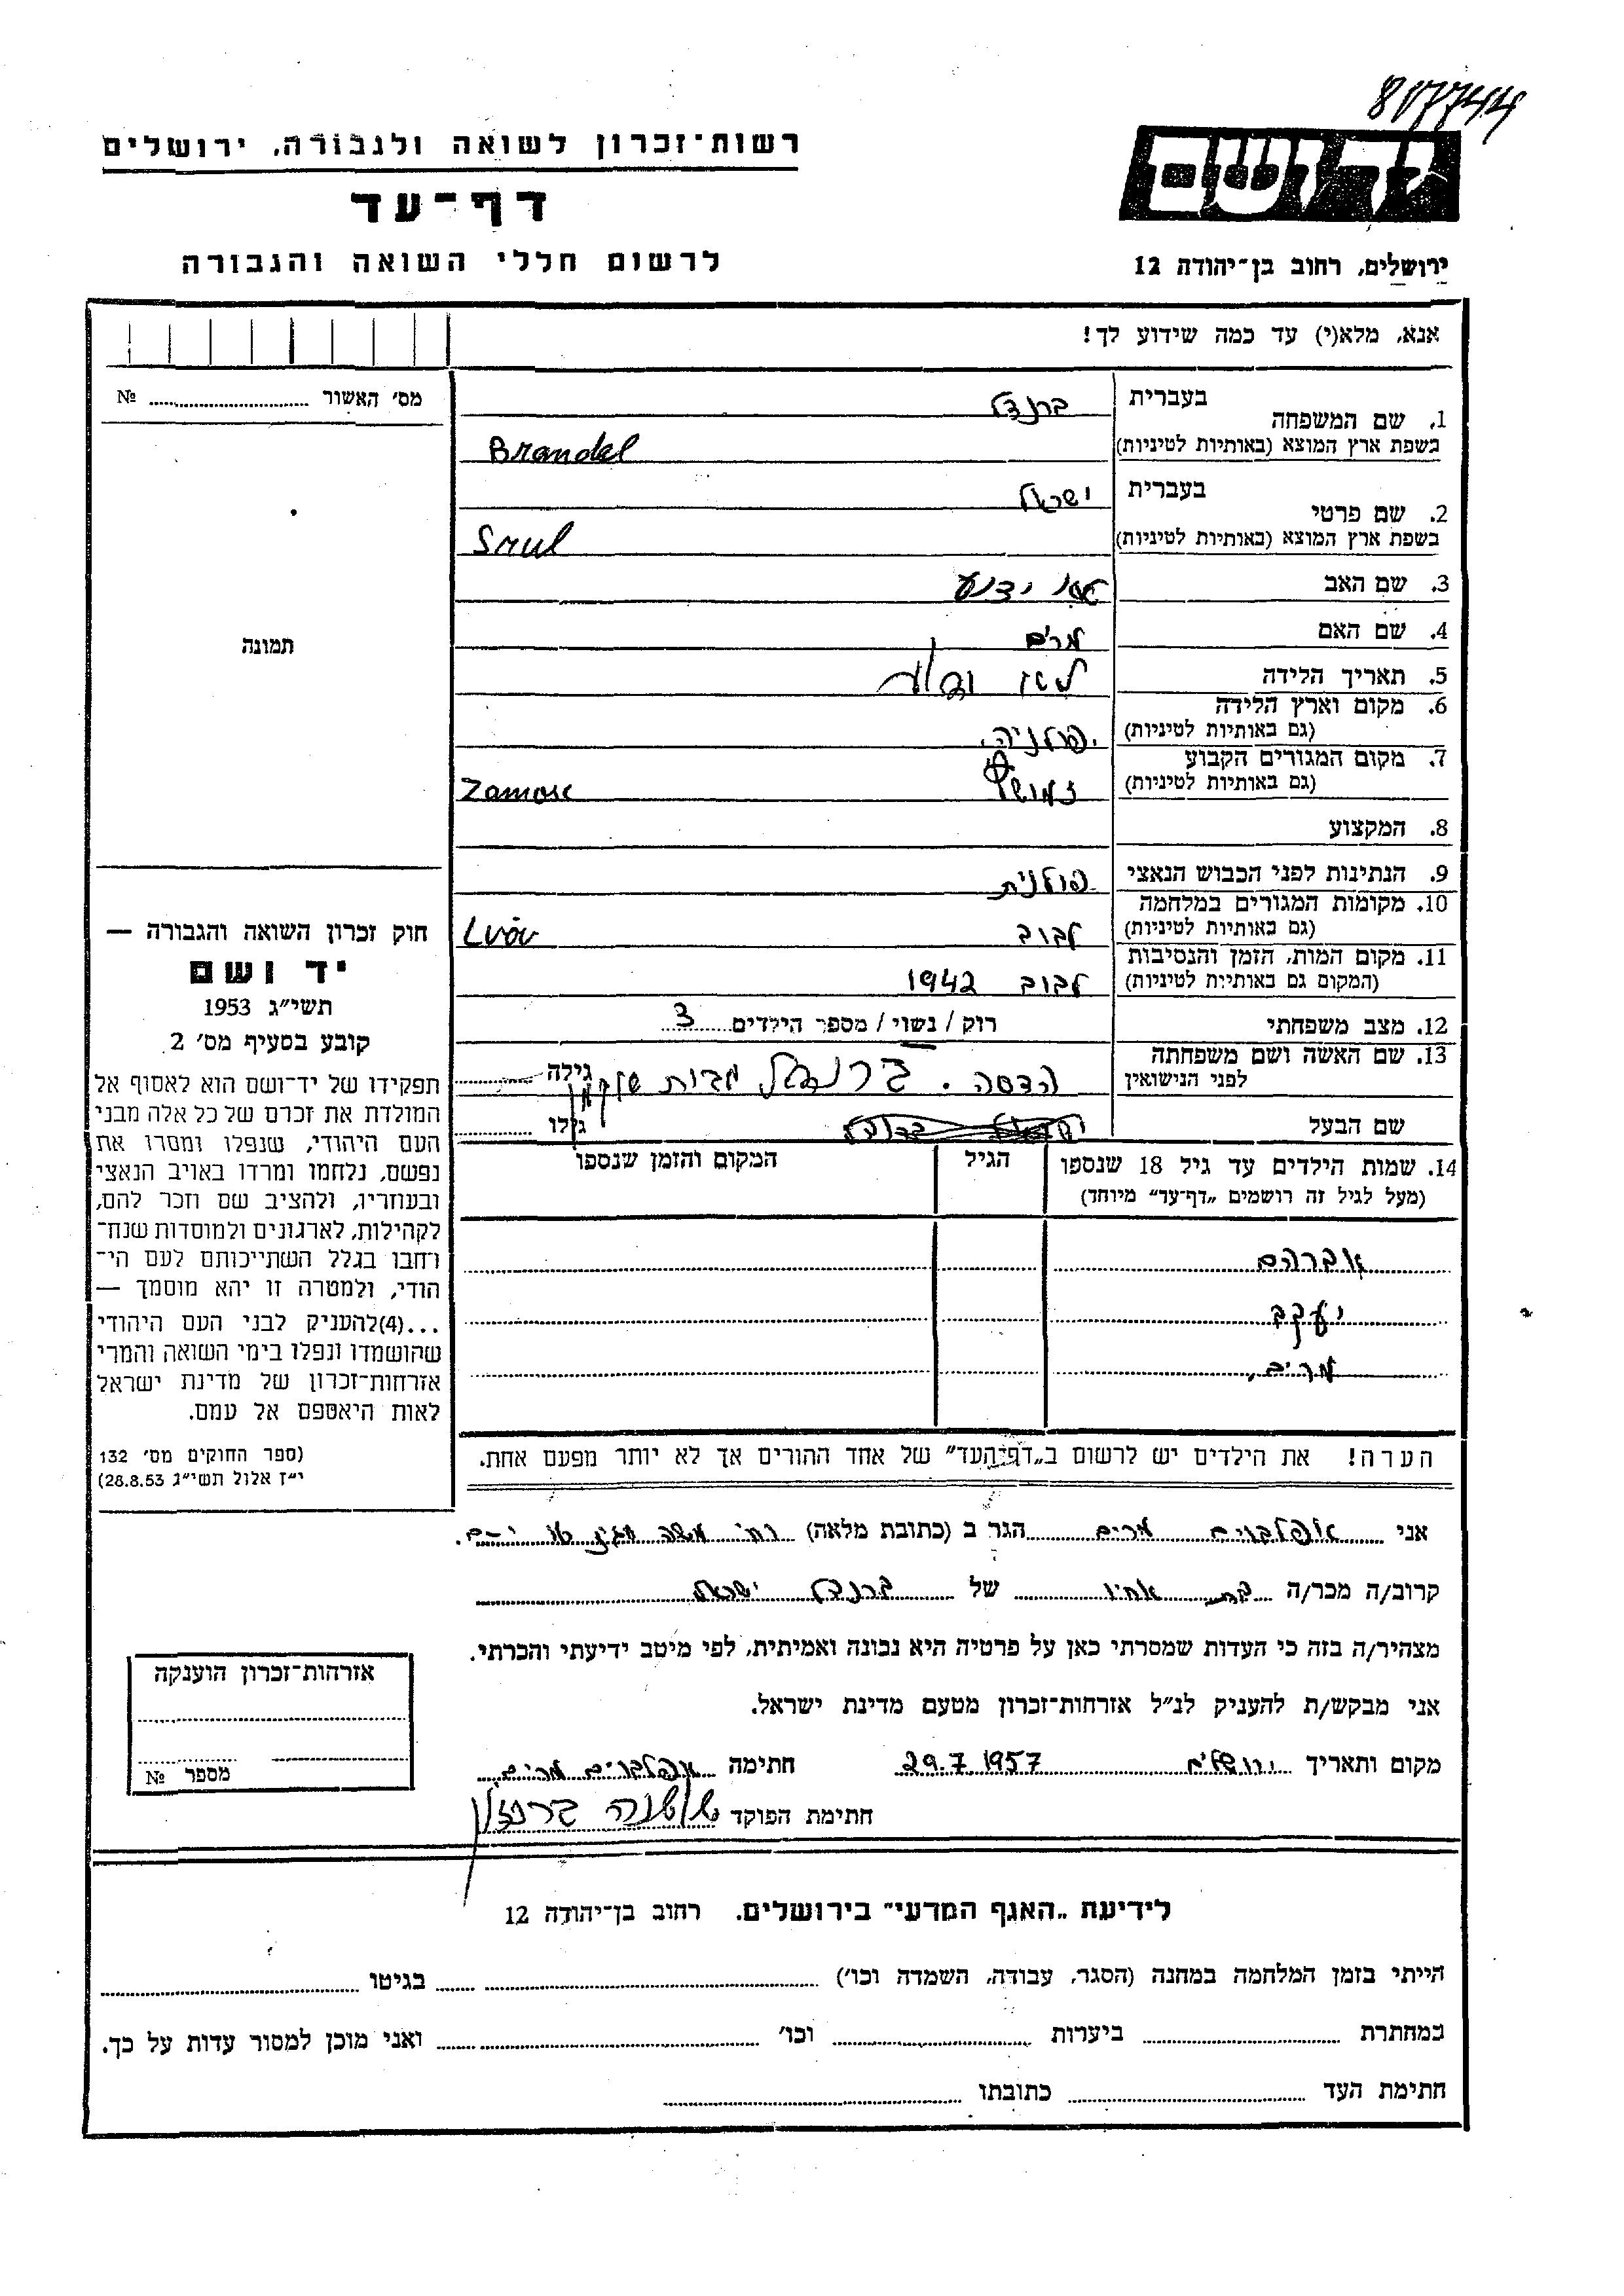 807744
רשות־זכרון לשואה ולגבורה, ירושלים
דף־עד
לרשום חללי השואה והגבורה
יד ושם
ירושלים, רחוב בן־יהודה 12
אנא, מלא(י) עד כמה שידוע לך!
מס׳ האשור № 
1. שם המשפחה
בעברית ברנדל
בשפת ארץ המוצא (באותיות לטיניות) Brandel
2. שם פרטי
בעברית ישראל
בשפת ארץ המוצא (באותיות לטיניות) Srul
3. שם האב לא ידוע
4. שם האם מרים
5. תאריך הלידה
6. מקום וארץ הלידה
(גם באותיות לטיניות) פולניה.
7. מקום המגורים הקבוע
(גם באותיות לטיניות) זמושץ Zamosc
8. המקצוע
9. הנתינות לפני הכבוש הנאצי פולנית
10. מקומות המגורים במלחמה
(גם באותיות לטיניות) לבוב Lvóv
11. מקום המות, הזמן והנסיבות
(המקום גם באותיות לטיניות) לבוב 1942
12. מצב משפחתי רוק / נשוי / מספר הילדים 3
13. שם האשה ושם משפחתה
לפני הנישואין הדסה. ברנדל מבית גילה
שם הבעל גילו
14. שמות הילדים עד גיל 18 שנספו הגיל המקום והזמן שנספו
(מעל לגיל זה רושמים „דף־עד״ מיוחד)
אברהם
יעקב
מרים
הערה! את הילדים יש לרשום ב„דף־העד״ של אחד ההורים אך לא יותר מפעם אחת.
תמונה
חוק זכרון השואה והגבורה —
יד ושם
תשי״ג 1953
קובע בסעיף מס׳ 2
תפקידו של יד־ושם הוא לאסוף אל
המולדת את זכרם של כל אלה מבני
העם היהודי, שנפלו ומסרו את
נפשם, נלחמו ומרדו באויב הנאצי
ובעוזריו, ולהציב שם וזכר להם,
לקהילות, לארגונים ולמוסדות שנח־
רחבו בגלל השתייכותם לעם הי־
הודי, ולמטרה זו יהא מוסמך —
...(4)להעניק לבני העם היהודי
שהושמדו ונפלו בימי השואה והמרי
אזרחות־זכרון של מדינת ישראל
לאות היאספם אל עמם.
(ספר החוקים מס׳ 132
י״ז אלול תשי״ג 28.8.53)
אני אפלבוים מרים הגר ב (כתובת מלאה) רח׳ משה
קרוב/ה מכר/ה בת אחיו של ברנדל ישראל
מצהיר/ה בזה כי העדות שמסרתי כאן על פרטיה היא נכונה ואמיתית, לפי מיטב ידיעתי והכרתי.
אני מבקש/ת להעניק לנ״ל אזרחות־זכרון מטעם מדינת ישראל.
מקום ותאריך ירושלים 29.7.1957 חתימה אפלבוים מרים
חתימת הפוקד שושנה
אזרחות־זכרון הוענקה
מספר №
לידיעת „האגף המדעי״ בירושלים. רחוב בן־יהודה 12
הייתי בזמן המלחמה במחנה (הסגר, עבודה, השמדה וכו׳) בגיטו
במחתרת ביערות וכו׳ ואני מוכן למסור עדות על כך.
חתימת העד כתובתו